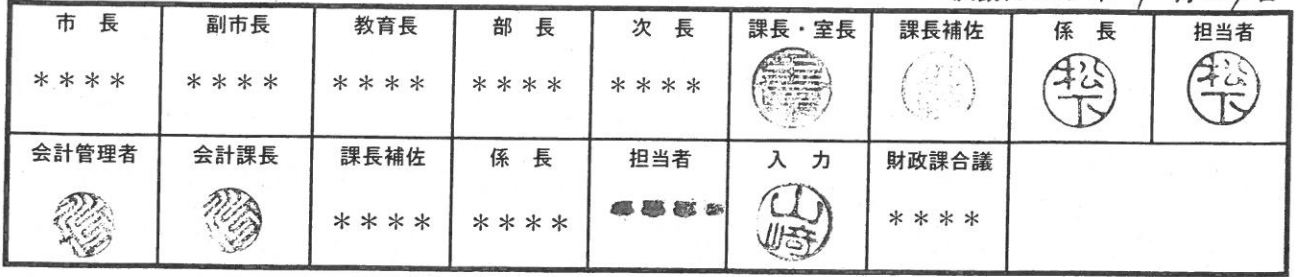 市 長 副市長 教育長 部 長 次 長 課長・室長 課長補佐 係 長 担当者
＊＊＊＊ ＊＊＊＊ ＊＊＊＊ ＊＊＊＊ ＊＊＊＊ 松下 松下
会計管理者 会計課長 課長補佐 係 長 担当者 入 力 財政課合議
＊＊＊＊ ＊＊＊＊ 山崎 ＊＊＊＊